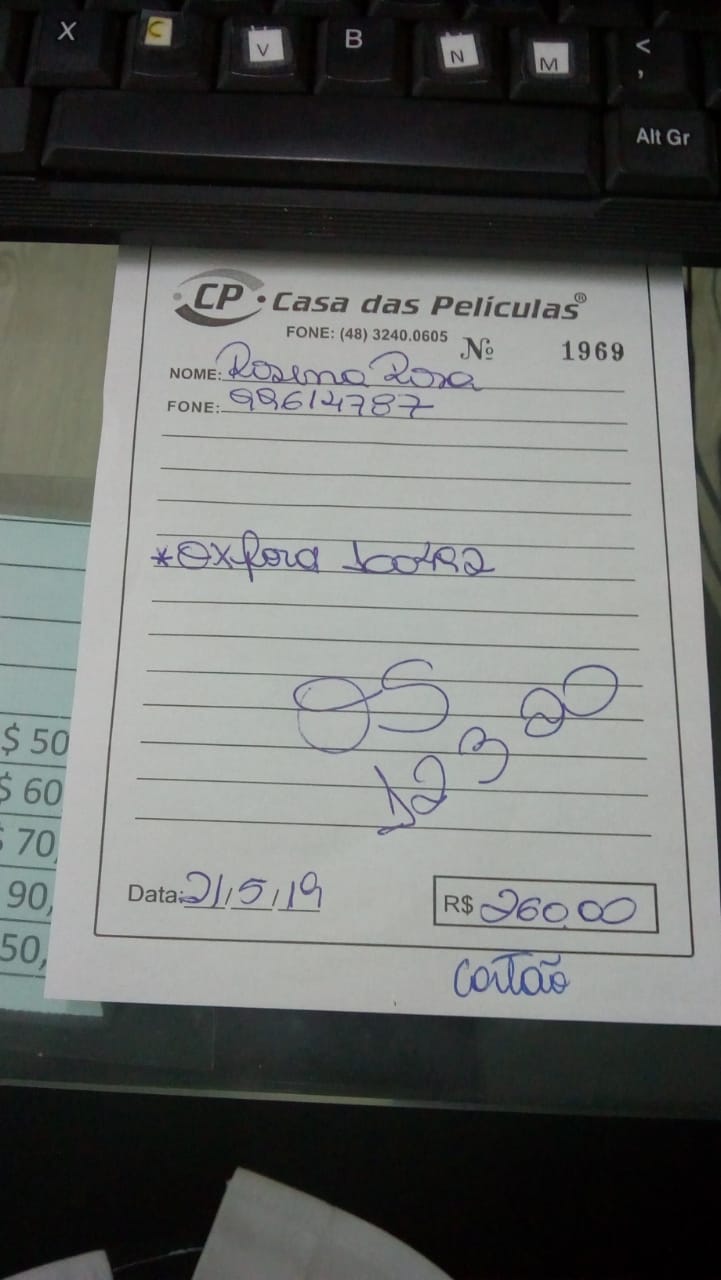 X C V B N M < ,
Alt Gr
CP Casa das Películas®
FONE: (48) 3240.0605 Nº 1969
NOME: Rosema Rosa
FONE: 99614787
*Oxford 100492
05
20
12 3
$ 50
$ 60
$ 70,
90,
50,
Data: 21/5/19 R$ 260,00
Cartão